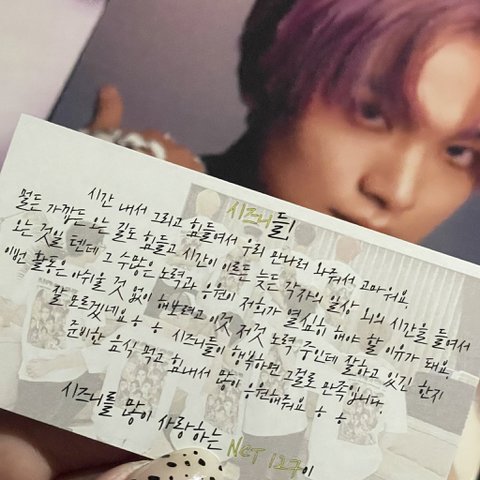 시즈니들!
시간 내서 그리고 힘들여서 우리 만나러 와줘서 고마워요.
멀든 가깝든 오는 길도 힘들고 시간이 이르든 늦든 각자의 일상 외의 시간을 들여서
오는 것일 텐데 그 수많은 노력과 응원이 저희가 열심히 해야 할 이유가 돼요.
이번 활동은 아쉬울 것 없이 해보려고 이것 저것 노력 중인데 잘하고 있긴 한지
잘 모르겠네요ㅎㅎ 시즈니들이 행복하면 그걸로 만족입니다.
준비한 음식 먹고 힘내서 많이 응원해줘요ㅎㅎ
시즈니를 많이 사랑하는 NCT 127이